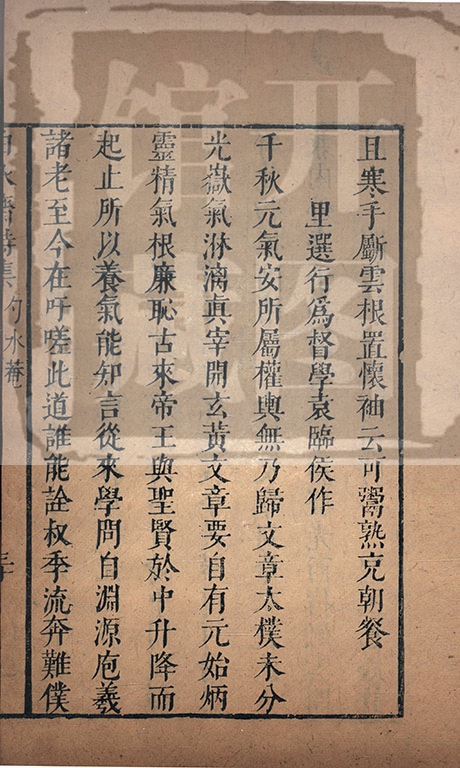 且寒手斸雲根置懷袖云可鬻熟克朝餐
里選行爲督學袁臨侯作
千秋元氣安所屬權輿無乃歸文章太樸未分
光嶽氣淋漓眞宰開玄黃文章要自有元始炳
靈精氣根廉恥古來帝王與聖賢於中升降而
起止所以養氣能知言從來學問自淵源庖羲
諸老至今在吁嗟此道誰能詮叔季流奔難僕
勺水菴